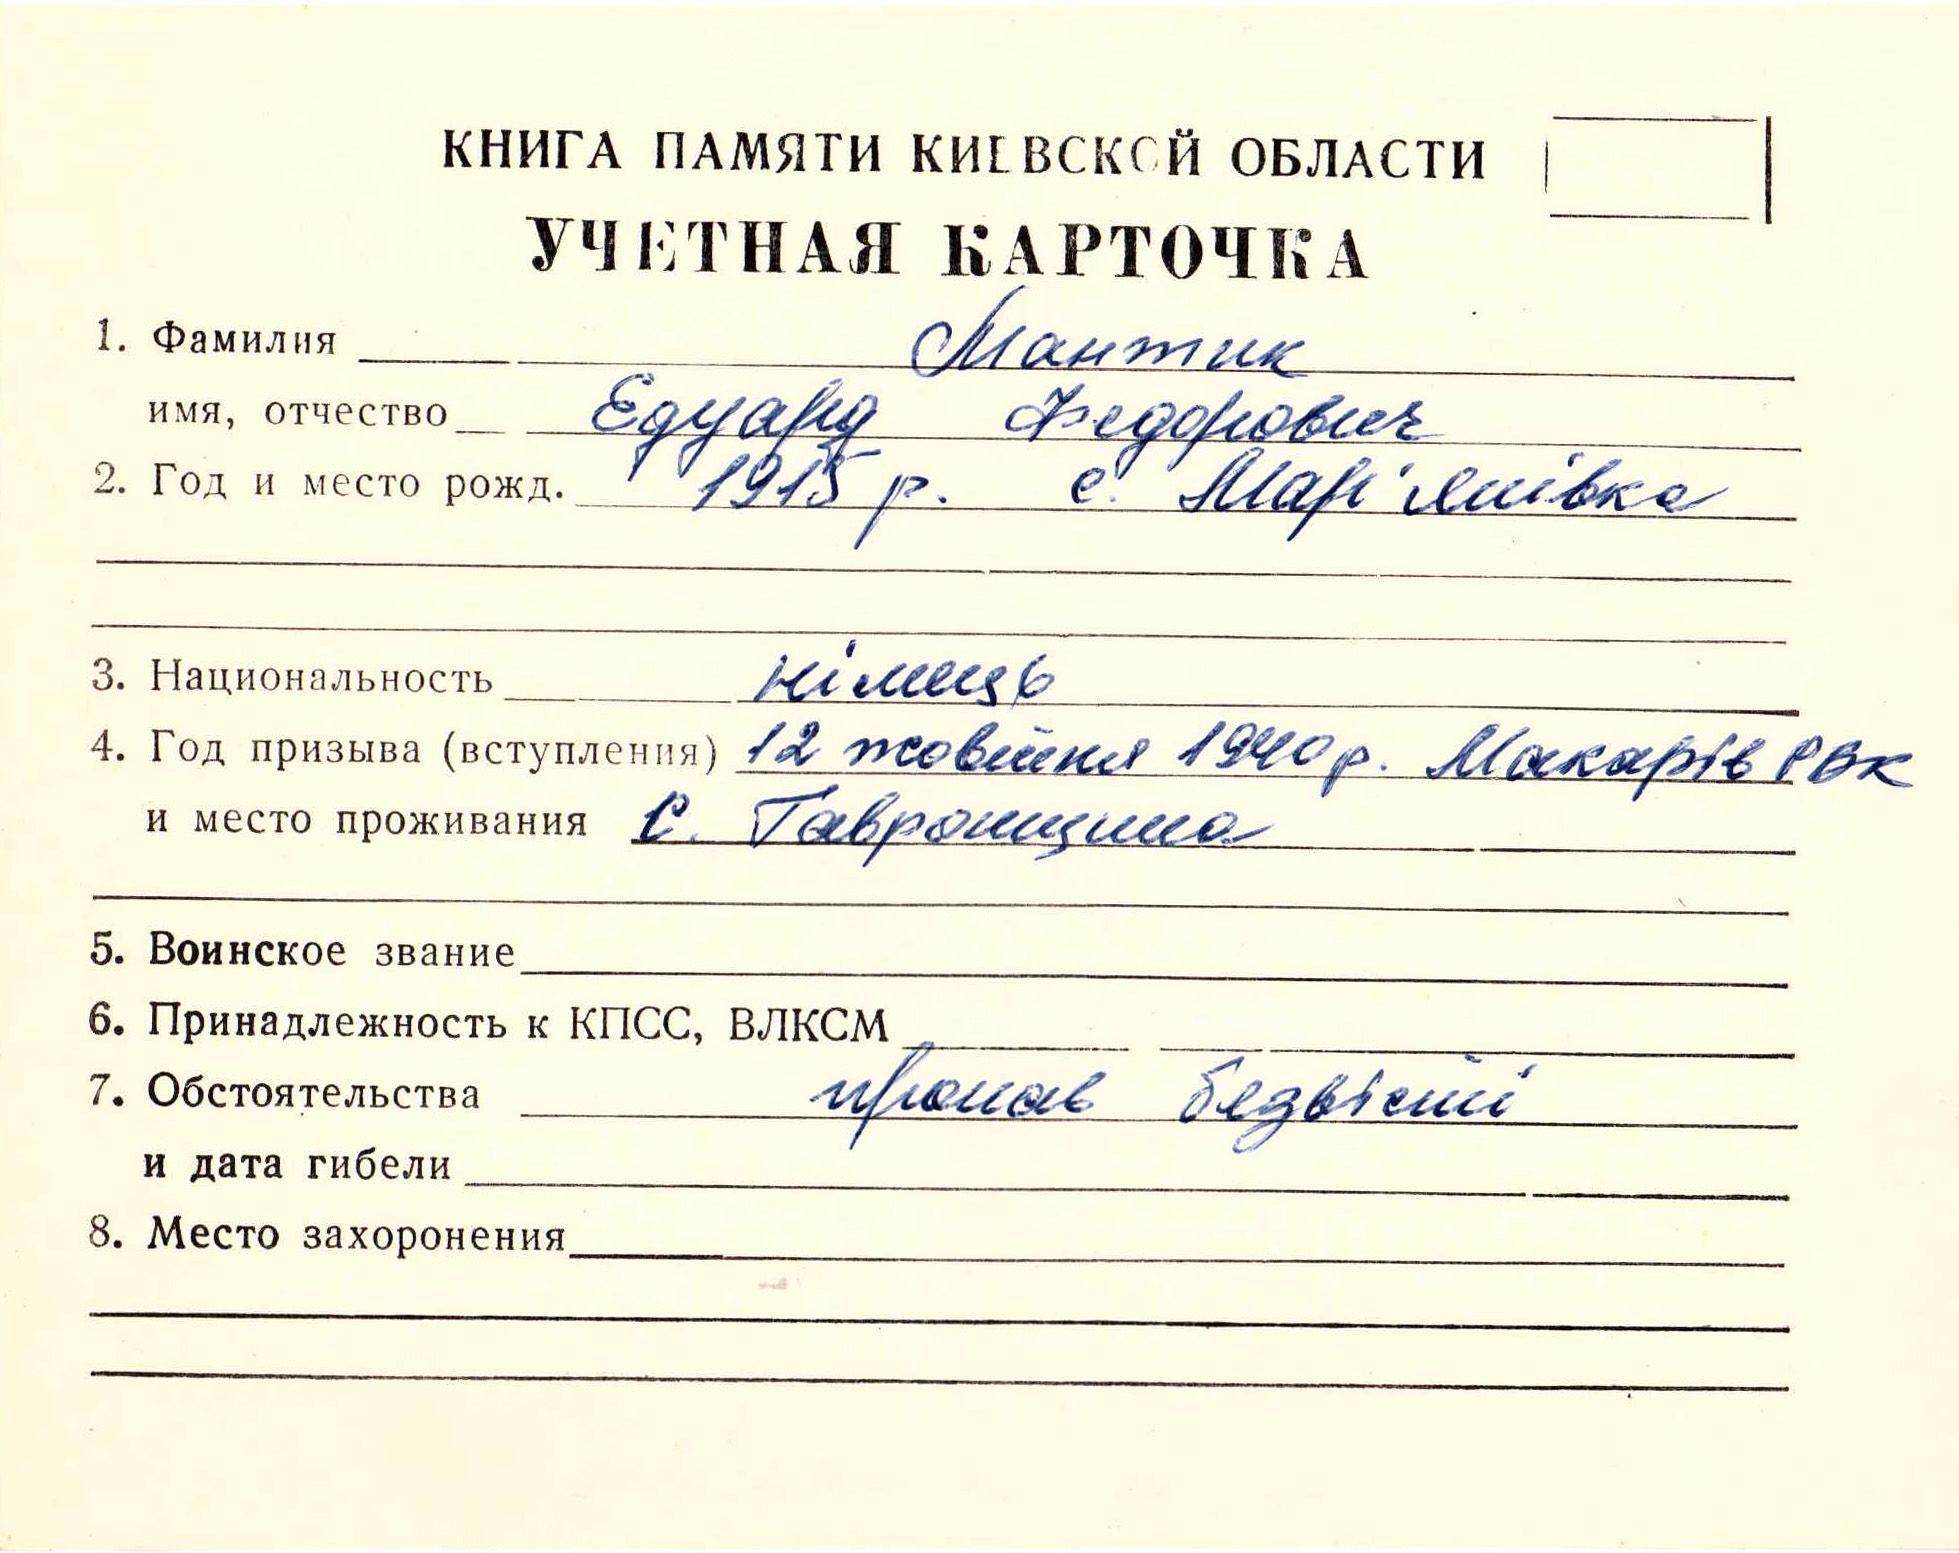 КНИГА ПАМЯТИ КИЕВСКОЙ ОБЛАСТИ
УЧЕТНАЯ КАРТОЧКА
1. Фамилия Мантик
имя, отчество Едуард Федорович
2. Год и место рожд. 1915 р. с. Мар'янівка
3. Национальность німець
4. Год призыва (вступления) 12 жовтня 1940 р. Макарів РВК
и место проживания с. Гавронщина
5. Воинское звание
6. Принадлежность к КПСС, ВЛКСМ
7. Обстоятельства пропав безвісті
и дата гибели
8. Место захоронения